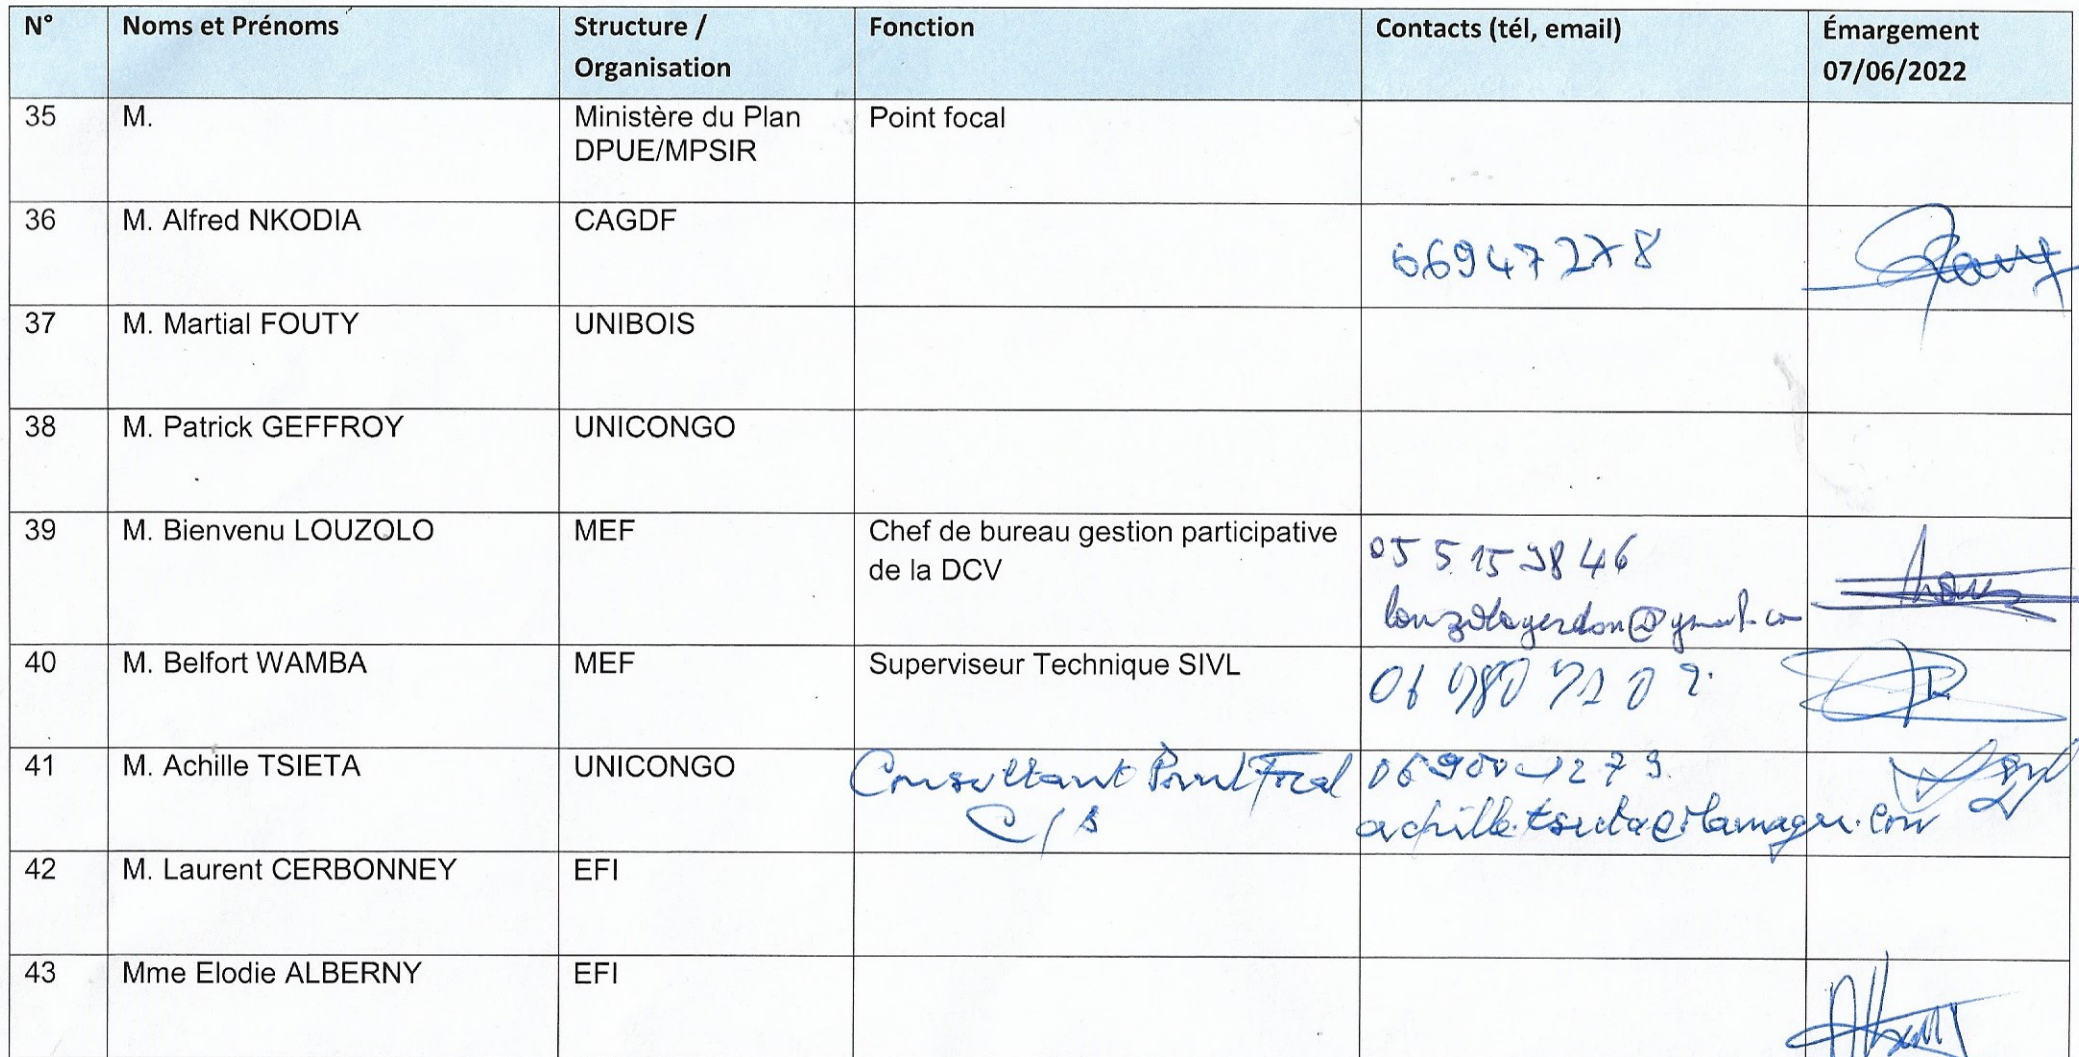 N° Noms et Prénoms Structure / Organisation Fonction Contacts (tél, email) Émargement 07/06/2022
35 M. Ministère du Plan DPUE/MPSIR Point focal
36 M. Alfred NKODIA CAGDF 66947278
37 M. Martial FOUTY UNIBOIS
38 M. Patrick GEFFROY UNICONGO
39 M. Bienvenu LOUZOLO MEF Chef de bureau gestion participative de la DCV 05 5 15 98 46
40 M. Belfort WAMBA MEF Superviseur Technique SIVL
41 M. Achille TSIETA UNICONGO Consultant Point Focal
42 M. Laurent CERBONNEY EFI
43 Mme Elodie ALBERNY EFI